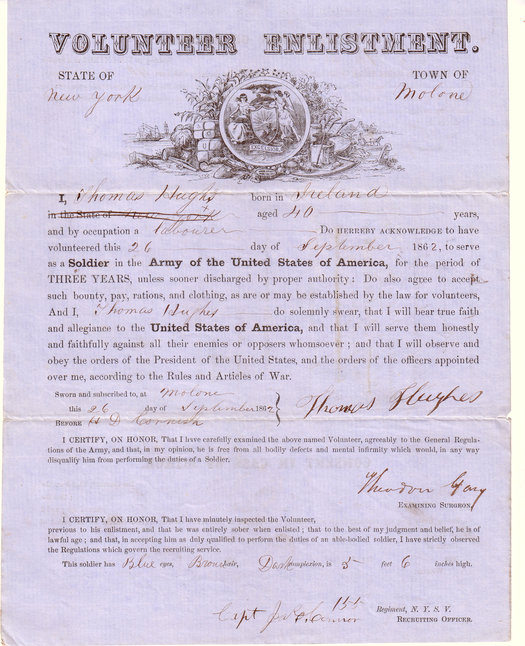 VOLUNTEER ENLISTMENT.
STATE OF TOWN OF
New York Molone
EXCELSIOR
I, Thomas Hughs born in Ireland
in the State of New York aged 40 years,
and by occupation a labourer Do HEREBY ACKNOWLEDGE to have
volunteered this 26 day of September 1862, to serve
as a Soldier in the Army of the United States of America, for the period of
THREE YEARS, unless sooner discharged by proper authority: Do also agree to accept
such bounty, pay, rations, and clothing, as are or may be established by the law for volunteers,
And I, Thomas Hughes do solemnly swear, that I will bear true faith
and allegiance to the United States of America, and that I will serve them honestly
and faithfully against all their enemies or opposers whomsoever; and that I will observe and
obey the orders of the President of the United States, and the orders of the officers appointed
over me, according to the Rules and Articles of War.
Sworn and subscribed to, at Molone
this 26 day of September 1862 Thomas Hughes
BEFORE H D Cornish
I CERTIFY, ON HONOR, That I have carefully examined the above named Volunteer, agreeably to the General Regula-
tions of the Army, and that, in my opinion, he is free from all bodily defects and mental infirmity which would, in any way
disqualify him from performing the duties of a Soldier.
Theodore Gay
EXAMINING SURGEON.
I CERTIFY, ON HONOR, That I have minutely inspected the Volunteer,
previous to his enlistment, and that he was entirely sober when enlisted; that to the best of my judgment and belief, he is of
lawful age; and that, in accepting him as duly qualified to perform the duties of an able-bodied soldier, I have strictly observed
the Regulations which govern the recruiting service.
This soldier has Blue eyes, Brown hair, Dark complexion, is 5 feet 6 inches high.
155 Regiment, N. Y. S. V.
Capt J W O'Connor RECRUITING OFFICER.